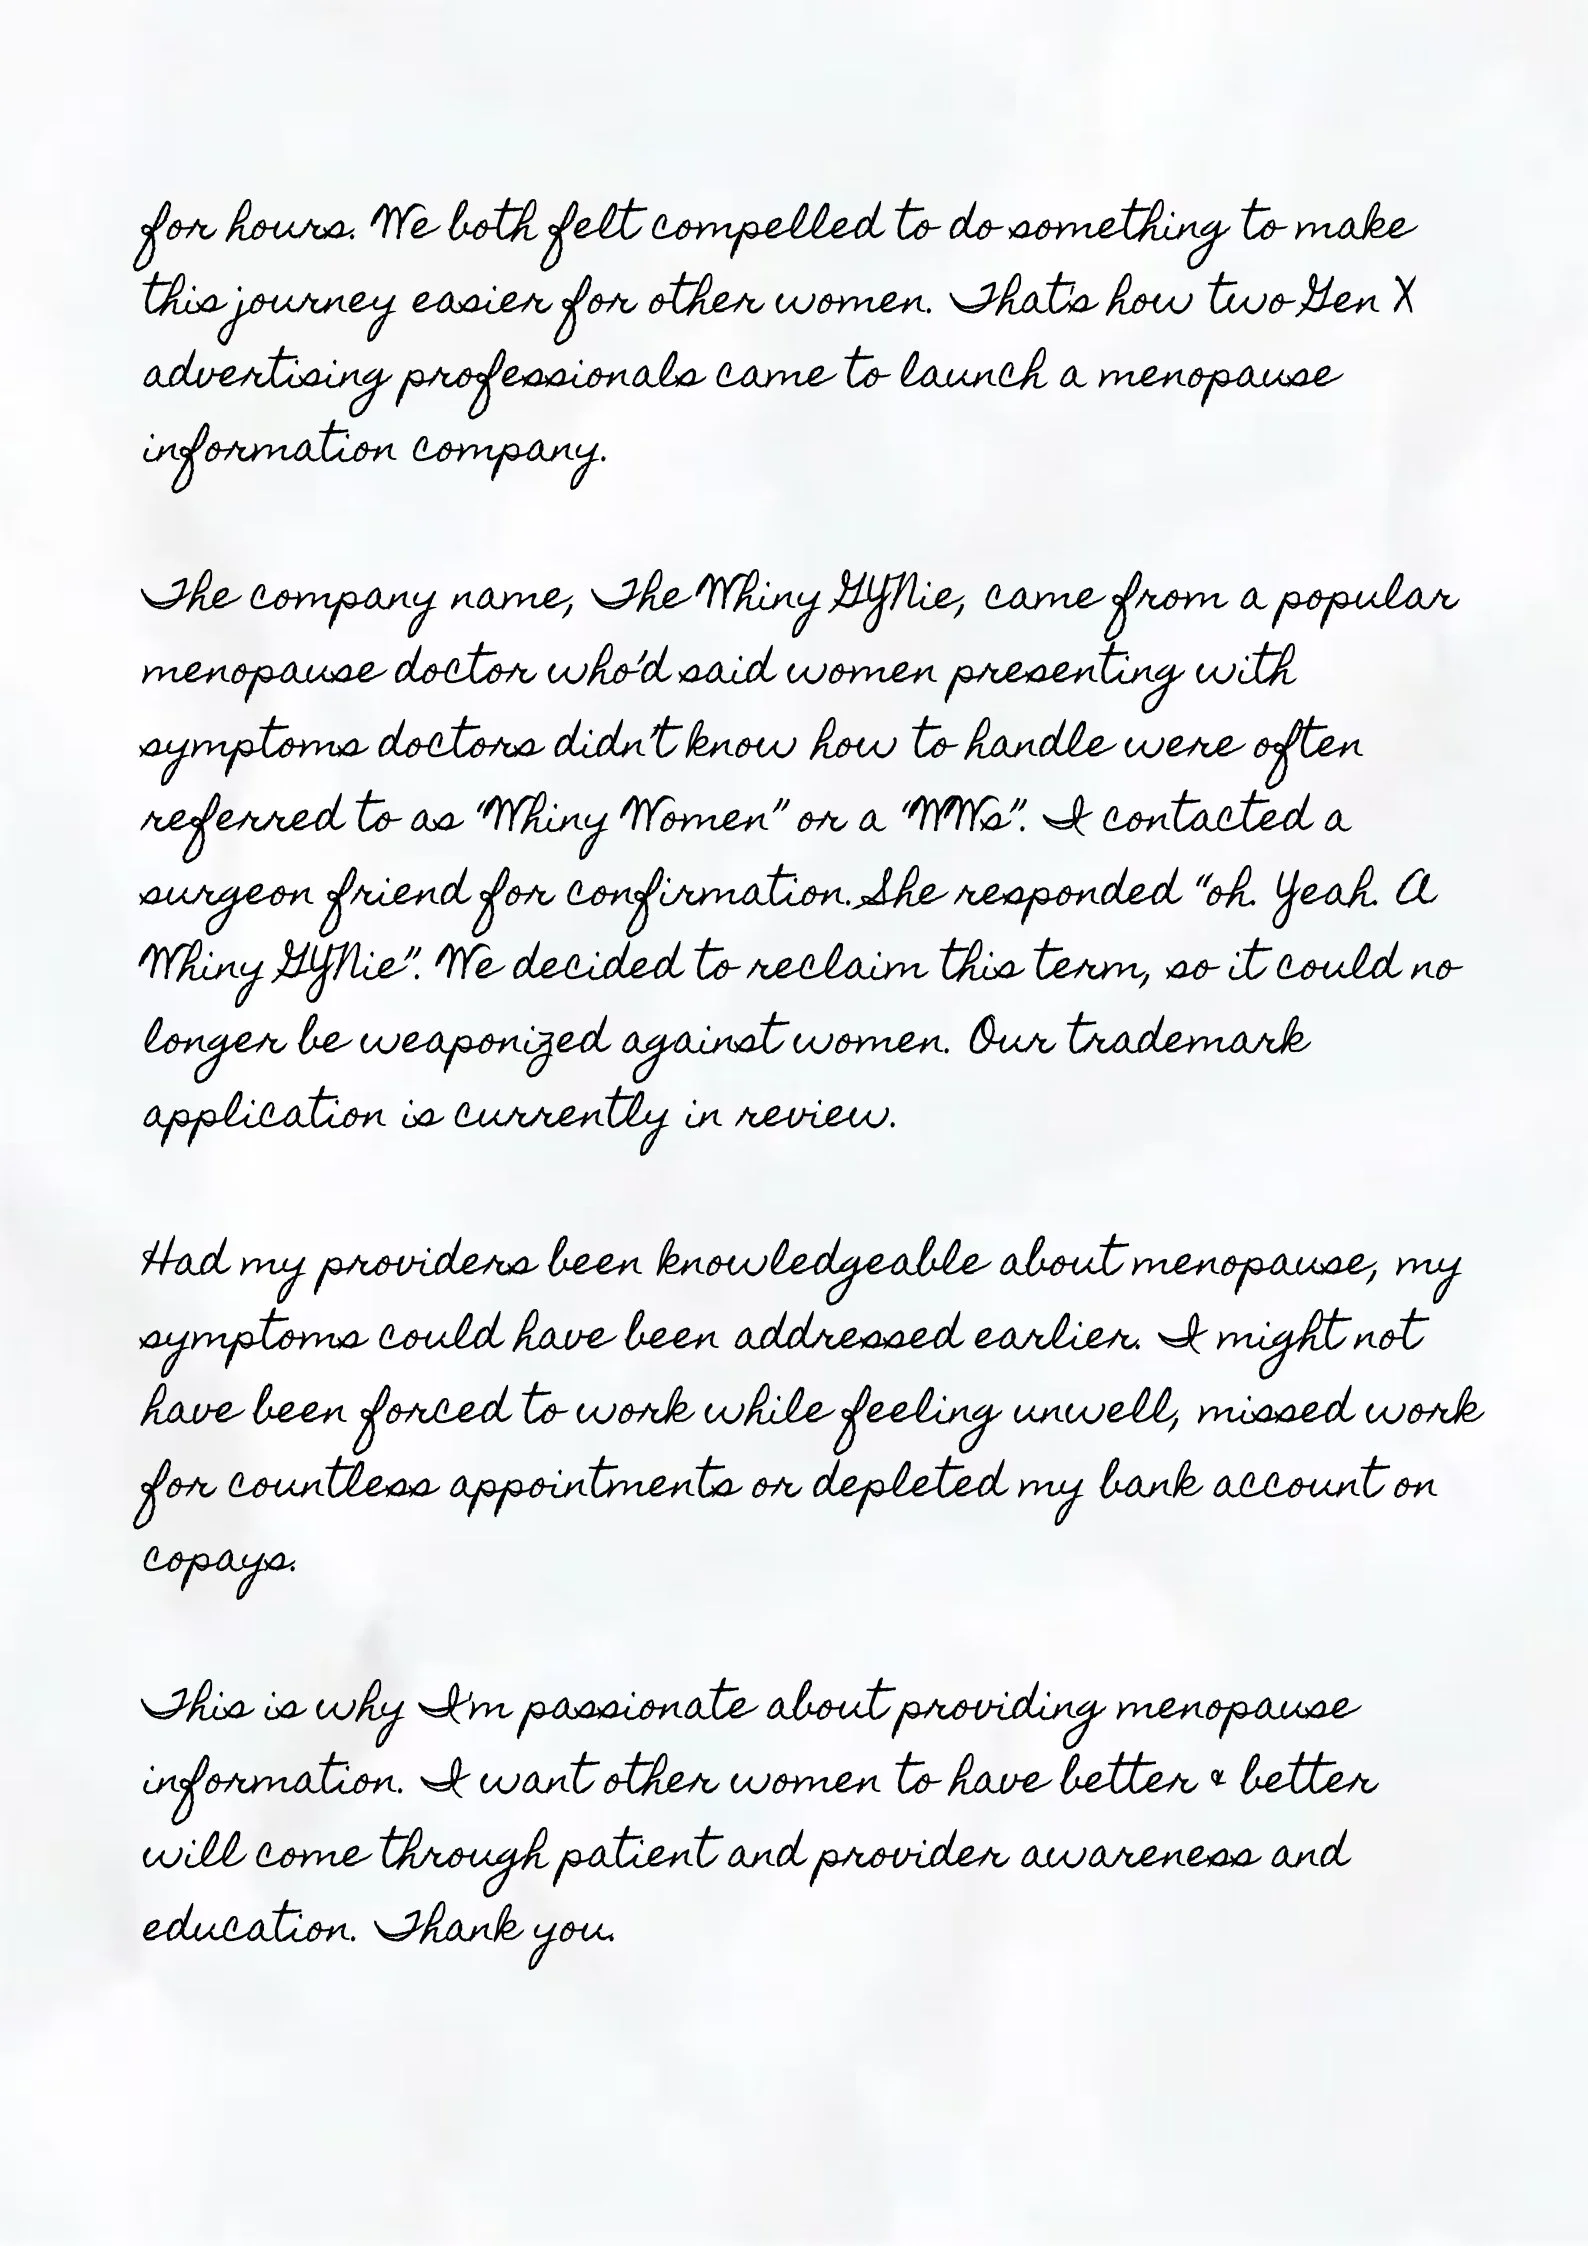 for hours. We both felt compelled to do something to make
this journey easier for other women. That's how two Gen X
advertising professionals came to launch a menopause
information company.
The company name, The Whiny GYNie, came from a popular
menopause doctor who'd said women presenting with
symptoms doctors didn't know how to handle were often
referred to as "Whiny Women" or a "WWs". I contacted a
surgeon friend for confirmation. She responded "oh. Yeah. A
Whiny GYNie". We decided to reclaim this term, so it could no
longer be weaponized against women. Our trademark
application is currently in review.
Had my providers been knowledgeable about menopause, my
symptoms could have been addressed earlier. I might not
have been forced to work while feeling unwell, missed work
for countless appointments or depleted my bank account on
copays.
This is why I'm passionate about providing menopause
information. I want other women to have better & better
will come through patient and provider awareness and
education. Thank you.